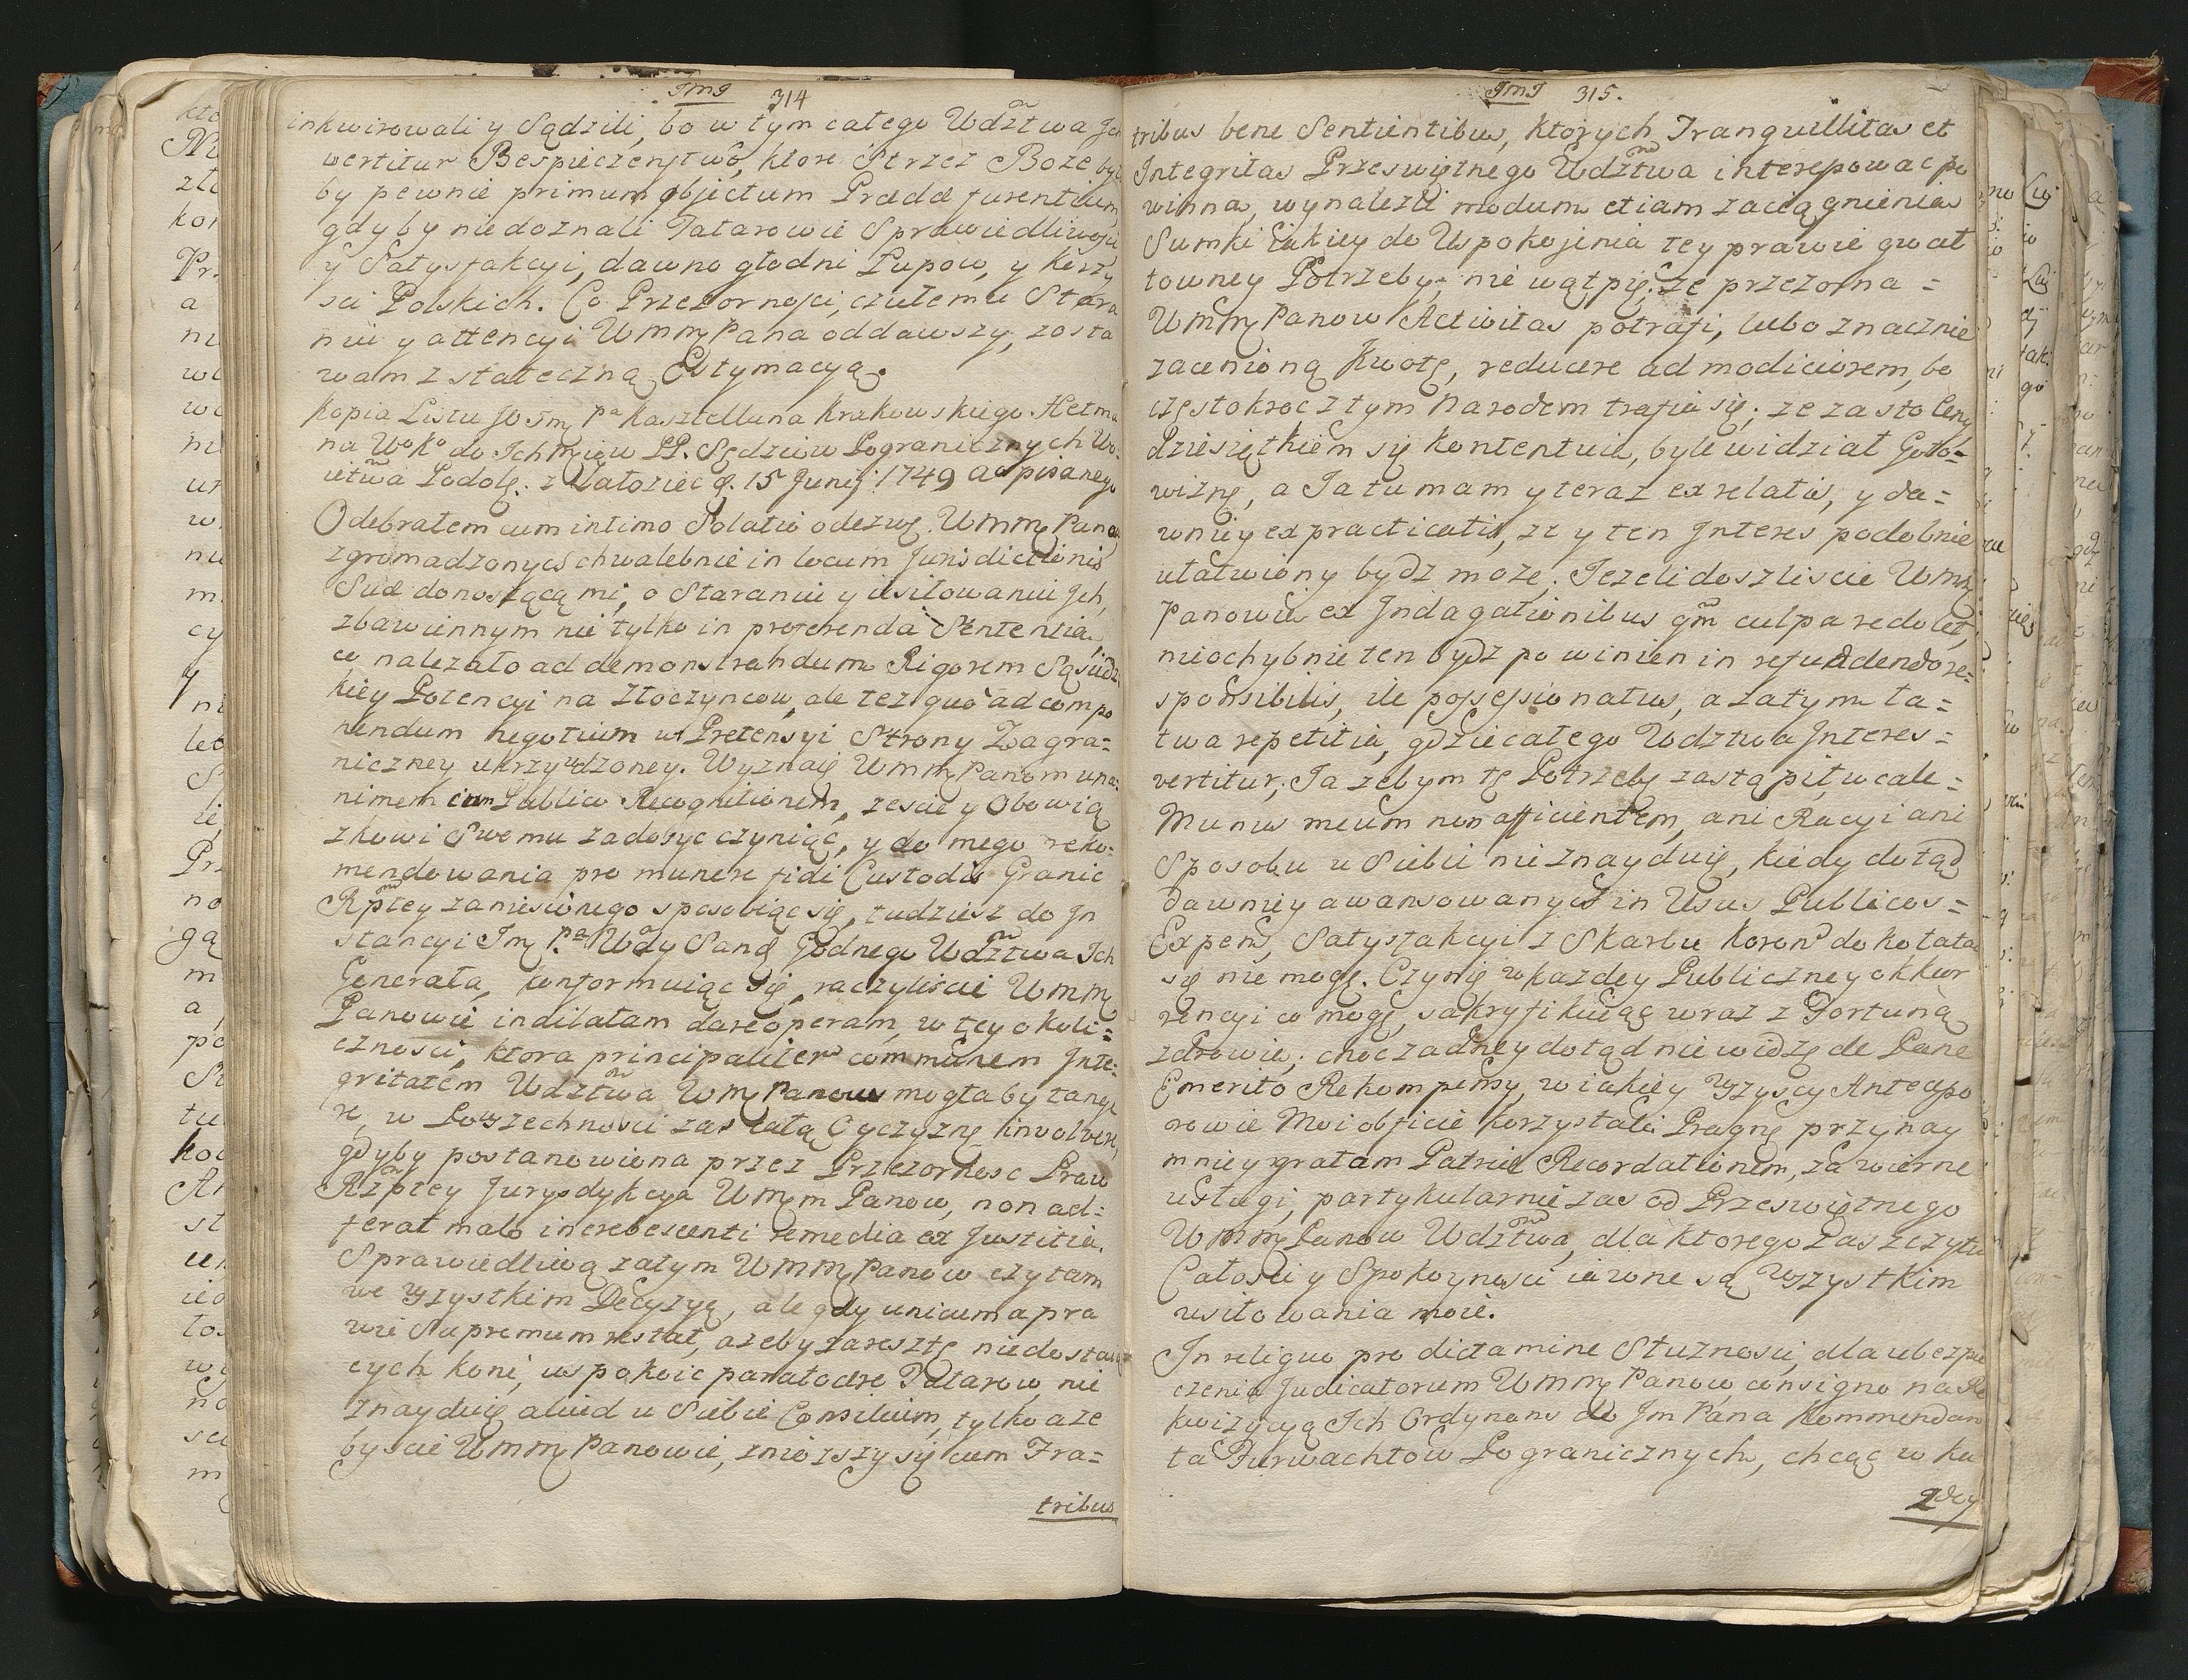 JMJ 314
inkwirowali y Sądzili, bo w tym całego Wdztwa Ich
vertitur Bespieczenstwo, ktore Strzez Boze było
by pewnie primum objectum Prædæ furentium,
gdyby niedoznali Tatarowie Sprawiedliwosci
y Satysfakcyi, dawno głodni Łupow, y korzy
sci Polskich. Co Przezornosci, czułemu Stara
niu y attencyi Wmm Pana oddawszy, zosta
wam z stateczną Estymacyą.
Kopia Listu JO Jm Pa Kasztellana Krakowskiego Hetma
na Wo Ko do Ichmciow PP. Sędziow Pogranicznych Wo
ietwa Podolg. z Załoziec g. 15 Junij 1749 ao pisanego
Odebrałem cum intimo Solatio odezwę Wmm Panow
zgromadzonych chwalebnie in locum Jurisdictionis
Suæ donoszącą mi, o Staraniu y usiłowaniu Ich,
zbawiennym nie tylko in proferenda Sententia,
co nalezało ad demonstrandum Rigorem Sąsiedz
kiey Potencyi na Złoczyncow, ale tez quo ad compo
nendum negotium w Pretensyi Strony Zagra=
niczney ukrzywdzoney. Wyznaię Wmm Panom una=
nimem cum Publico Recognitionem, zescie y Obowią
zkowi Swemu zadosyc czyniąc, y do mego reko=
mendowania pro munere fidi Custodis Granic
Rptey zaniesionego sposobiąc się, tudziesz do In
stancyi Jm Pa Wdy Sand Godnego Wdztwa Ich
Generała, konformuiąc się, raczyliscie Wmm
Panowie indilatam dare operam, w tey okoli=
cznosci, ktora principaliter communem Inte=
gritatem Wdztwa Wm Panow mogłaby tange
re, w Powszechnosci zas całą Oyczyznę involvere,
gdyby postanowiona przez Przezornosc Praw
Rzptey Jurysdykcya Wmm Panow, non ad=
ferat malo increbescenti remedia ex Justitia.
Sprawiedliwą zatym Wmm Panow czytam
we wszystkim Decyzyą, ale gdy unicum a pra
wie Supremum restat, azeby zaresztę niedostaią
cych koni, uspokoic paratoære Tatarow, nie
znayduię aliud u Siebie Consilium, tylko aze
byscie Wmm Panowie, zniozszy się cum Fra=
tribus
JMJ 315.
tribus bene Sentientibus, ktorych Tranquillitas et
Integritas Przeswiętnego Wdztwa interepowac po
winna, wynalezli modum etiam zaciągnienia
Sumki iakiey do Uspokojenia tey prawie gwał
towney Potrzeby; nie wątpię, ze przezorna =
Wmm Panow Activitas potrafi, lubo znacznie
zacenioną Kwotę, reducere ad modiciorem, bo
częstokroc z tym Narodem trafia się; ze za sto Ceny
dziesiętkiem się kontentuie, byle widział Goto=
wiznę, a Ia tu mam y teraz ex relatis, y da=
wniey ex practicatis, ze y ten Interes podobnie
ułatwiony bydz moze. Iezeli doszliscie Wmm
Panowie ex Indagationibus qm culpa redolet,
niochybnie ten bydz powinien in refundendo re=
sponsibilis, ile possessionatus, a zatym ła=
twa repetitia, gdzie całego Wdztwa Interes=
vertitur; Ia zebym tę Potrzebę zastąpił w cale=
Munus meum non afficientem, ani Racyi ani
Sposobu u Siebie nie znayduię, kiedy dotąd
dawniey awansowanych in Usus Publicos=
Expens, Satysfakcyi z Skarbu Koron dokołatać
się nie mogę. Czynię w kazdey Publiczney okkur
rencyi co mogę, sakryfikuiąc wraz z Fortuną
zdrowie; choc zadney dotąd nie widzę de Bene
Emerito Rekompensy, w iakiey wszyscy Anteceso
rowie Moi obficie korzystali. Pragnę przynay
mniey gratam Patriæ Recordationem, za wierne
usługi, partykularnie zas od Przeswiętnego
Wmm Panow Wdztwa, dla ktorego zaszczytu
Całosci y Spokoynosci iawne są wszystkim
usiłowania moie.
In reliquo pro dictamine Słusznosci, dla ubezpie
czenia Judicatorum Wmm Panow, consigno na Re
kwizycyą Ich Ordynans do Jm Pana Kommendan
ta Furwachtow Pogranicznych, chcąc w ka
zdey